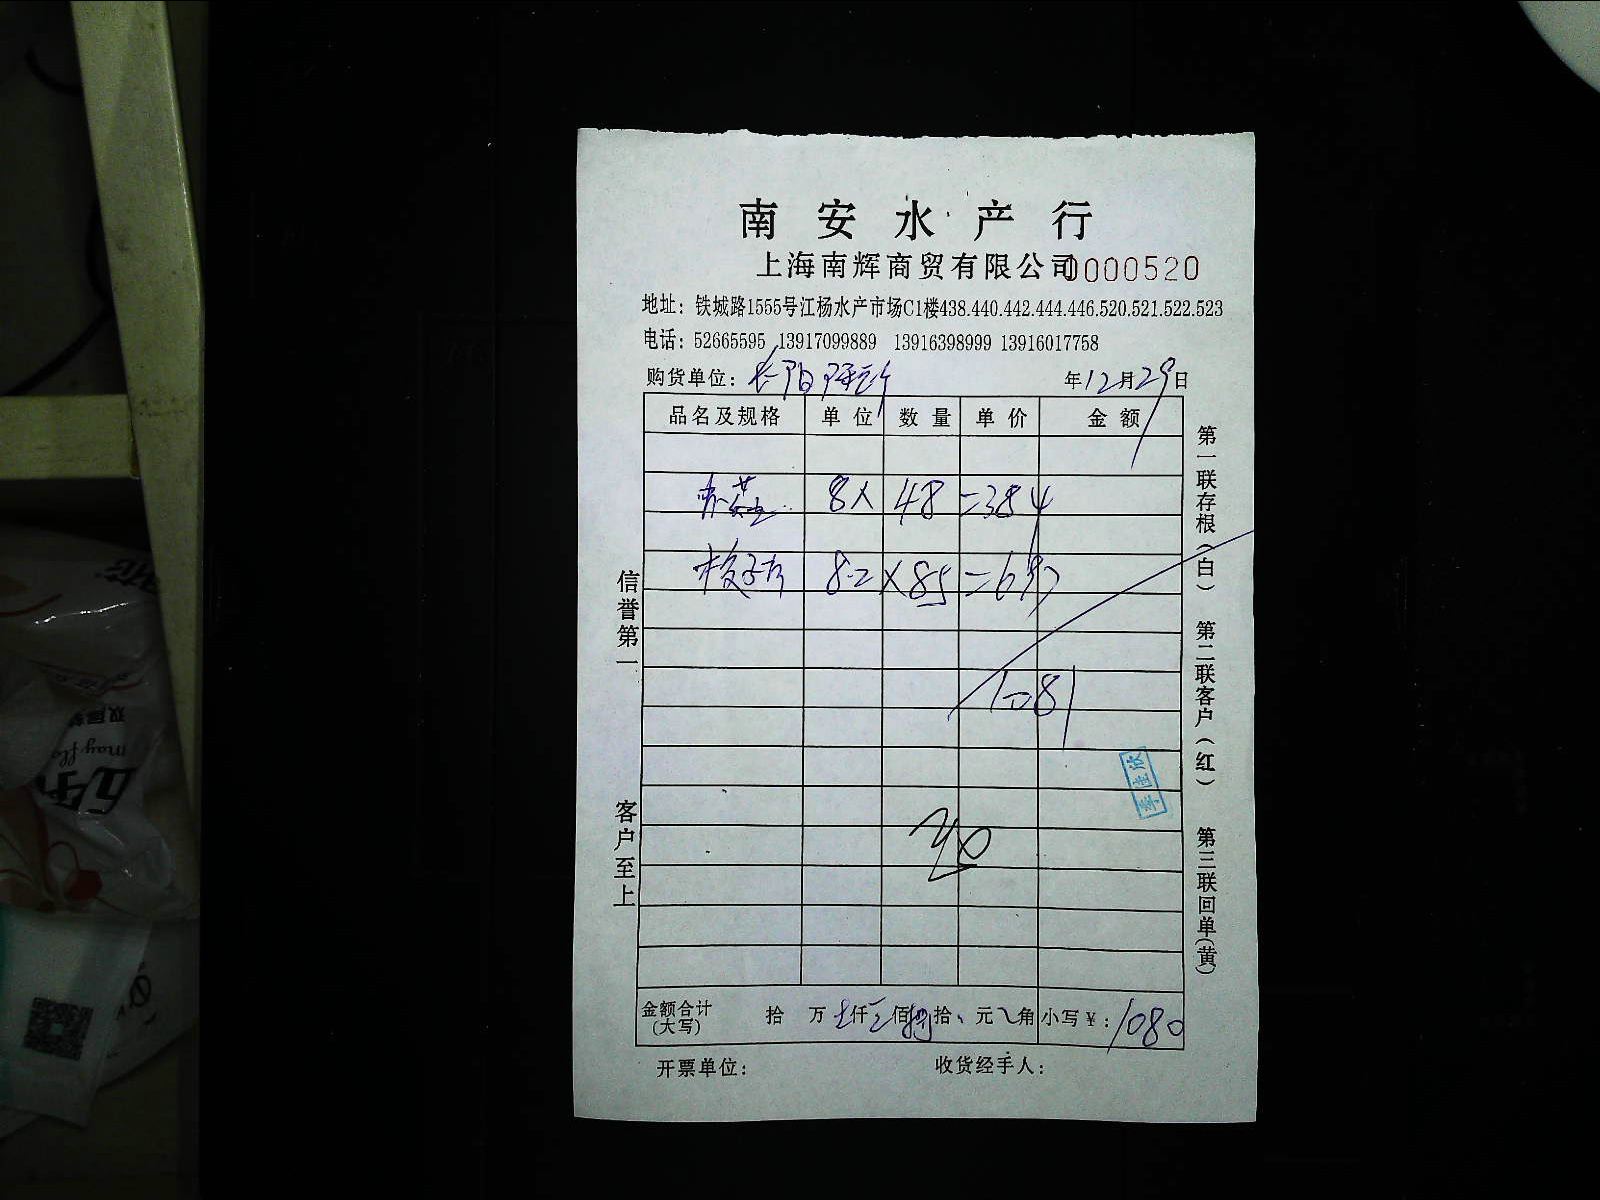 南安水产行
上海南辉商贸有限公司 0000520
地址：铁城路1555号江杨水产市场C1楼438.440.442.444.446.520.521.522.523
电话：52665595 13917099889 13916398999 13916017758
购货单位：长阳 年12月29日
品名及规格 单位 数量 单价 金额
8× 48 =384
8.2 ×85 =697
1081
金额合计(大写) 拾 万 仟 佰 拾 元 角 小写￥：1080
开票单位： 收货经手人：
信誉第一
客户至上
第一联存根（白） 第二联客户（红） 第三联回单(黄)